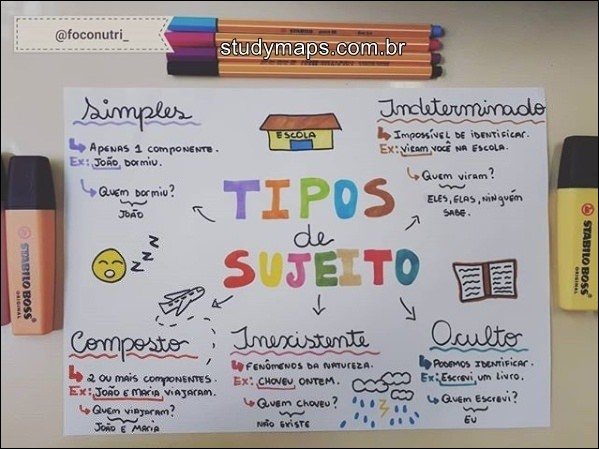 @foconutri_
studymaps.com.br
Simples
APENAS 1 COMPONENTE.
Ex: JOÃO DORMIU.
QUEM DORMIU?
JOÃO
ESCOLA
Indeterminado
IMPOSSÍVEL DE IDENTIFICAR.
Ex: VIRAM VOCÊ NA ESCOLA.
QUEM VIRAM?
ELES, ELAS, NINGUÉM
SABE.
TIPOS
de
SUJEITO
ZZZ
Composto
2 OU MAIS COMPONENTES.
Ex: JOÃO E MARIA VIAJARAM.
QUEM VIAJARAM?
JOÃO E MARIA
Inexistente
FENÔMENOS DA NATUREZA.
Ex: CHOVEU ONTEM.
QUEM CHOVEU?
NÃO EXISTE
Oculto
PODEMOS IDENTIFICAR.
Ex: ESCREVI UM LIVRO.
QUEM ESCREVI?
EU
STABILO BOSS
ORIGINAL
STABILO BOSS
ORIGINAL